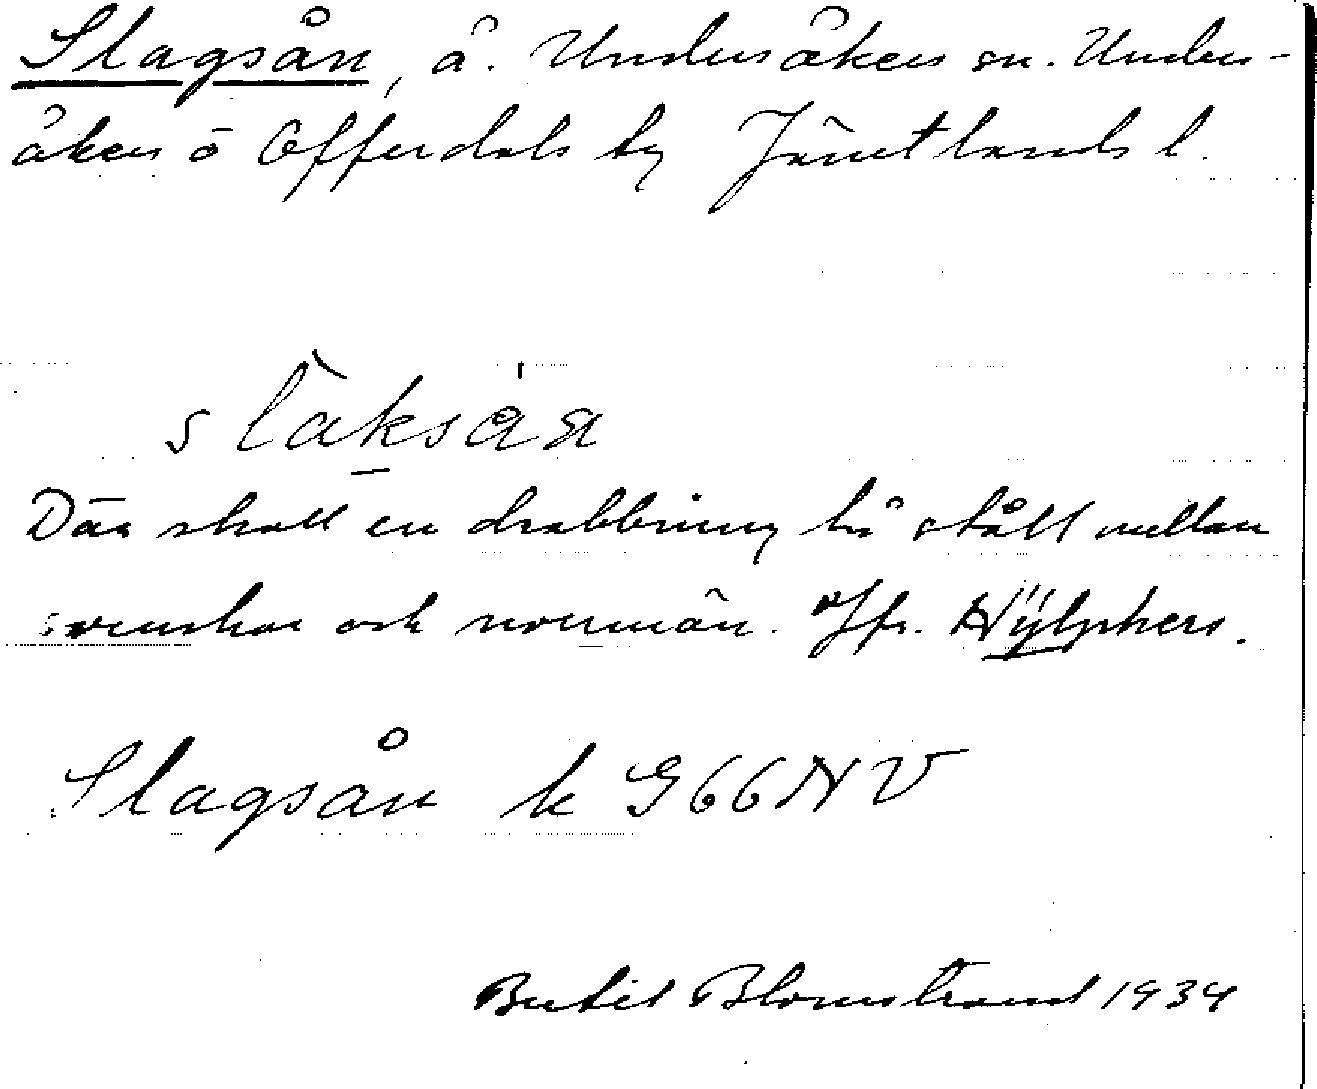 Slagsån, å. Undersåkers sn. Under-
såkers o Offerdals tg Jämtlands l.
slàksåa
Där skall en drabbning ha stått mellan
svenskar och norrmän. Jfr. Hülphers.
Slagsån k G66NV
Bertil Blomstrand 1934